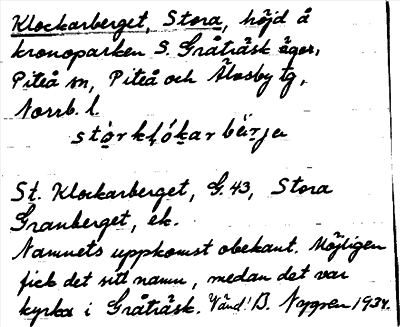 Klockarberget, Stora, höjd å
kronoparken S. Gråträsk ägor,
Piteå sn, Piteå och Älvsby tg,
Norrb. l.
stórklókarbärja
St. Klockarberget, G. 43, Stora
Granberget, ek.
Namnets uppkomst obekant. Möjligen
fick det sitt namn, medan det var
kyrka i Gråträsk. Vänd! B. Nygren 1934.